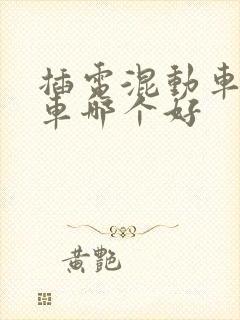 插電混動車
車哪个好
黄艷